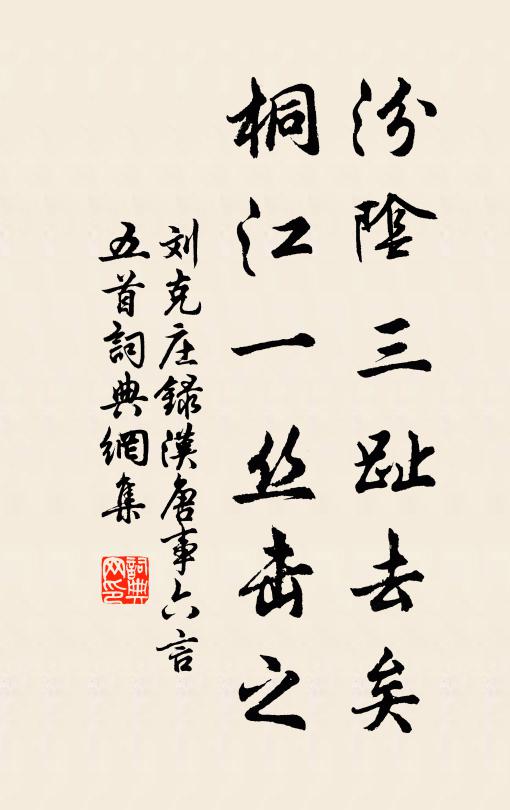 汾陰三趾去矣
桐江一丝击之
刘克庄録漢唐事六言
五首詞典網集
詞典网印